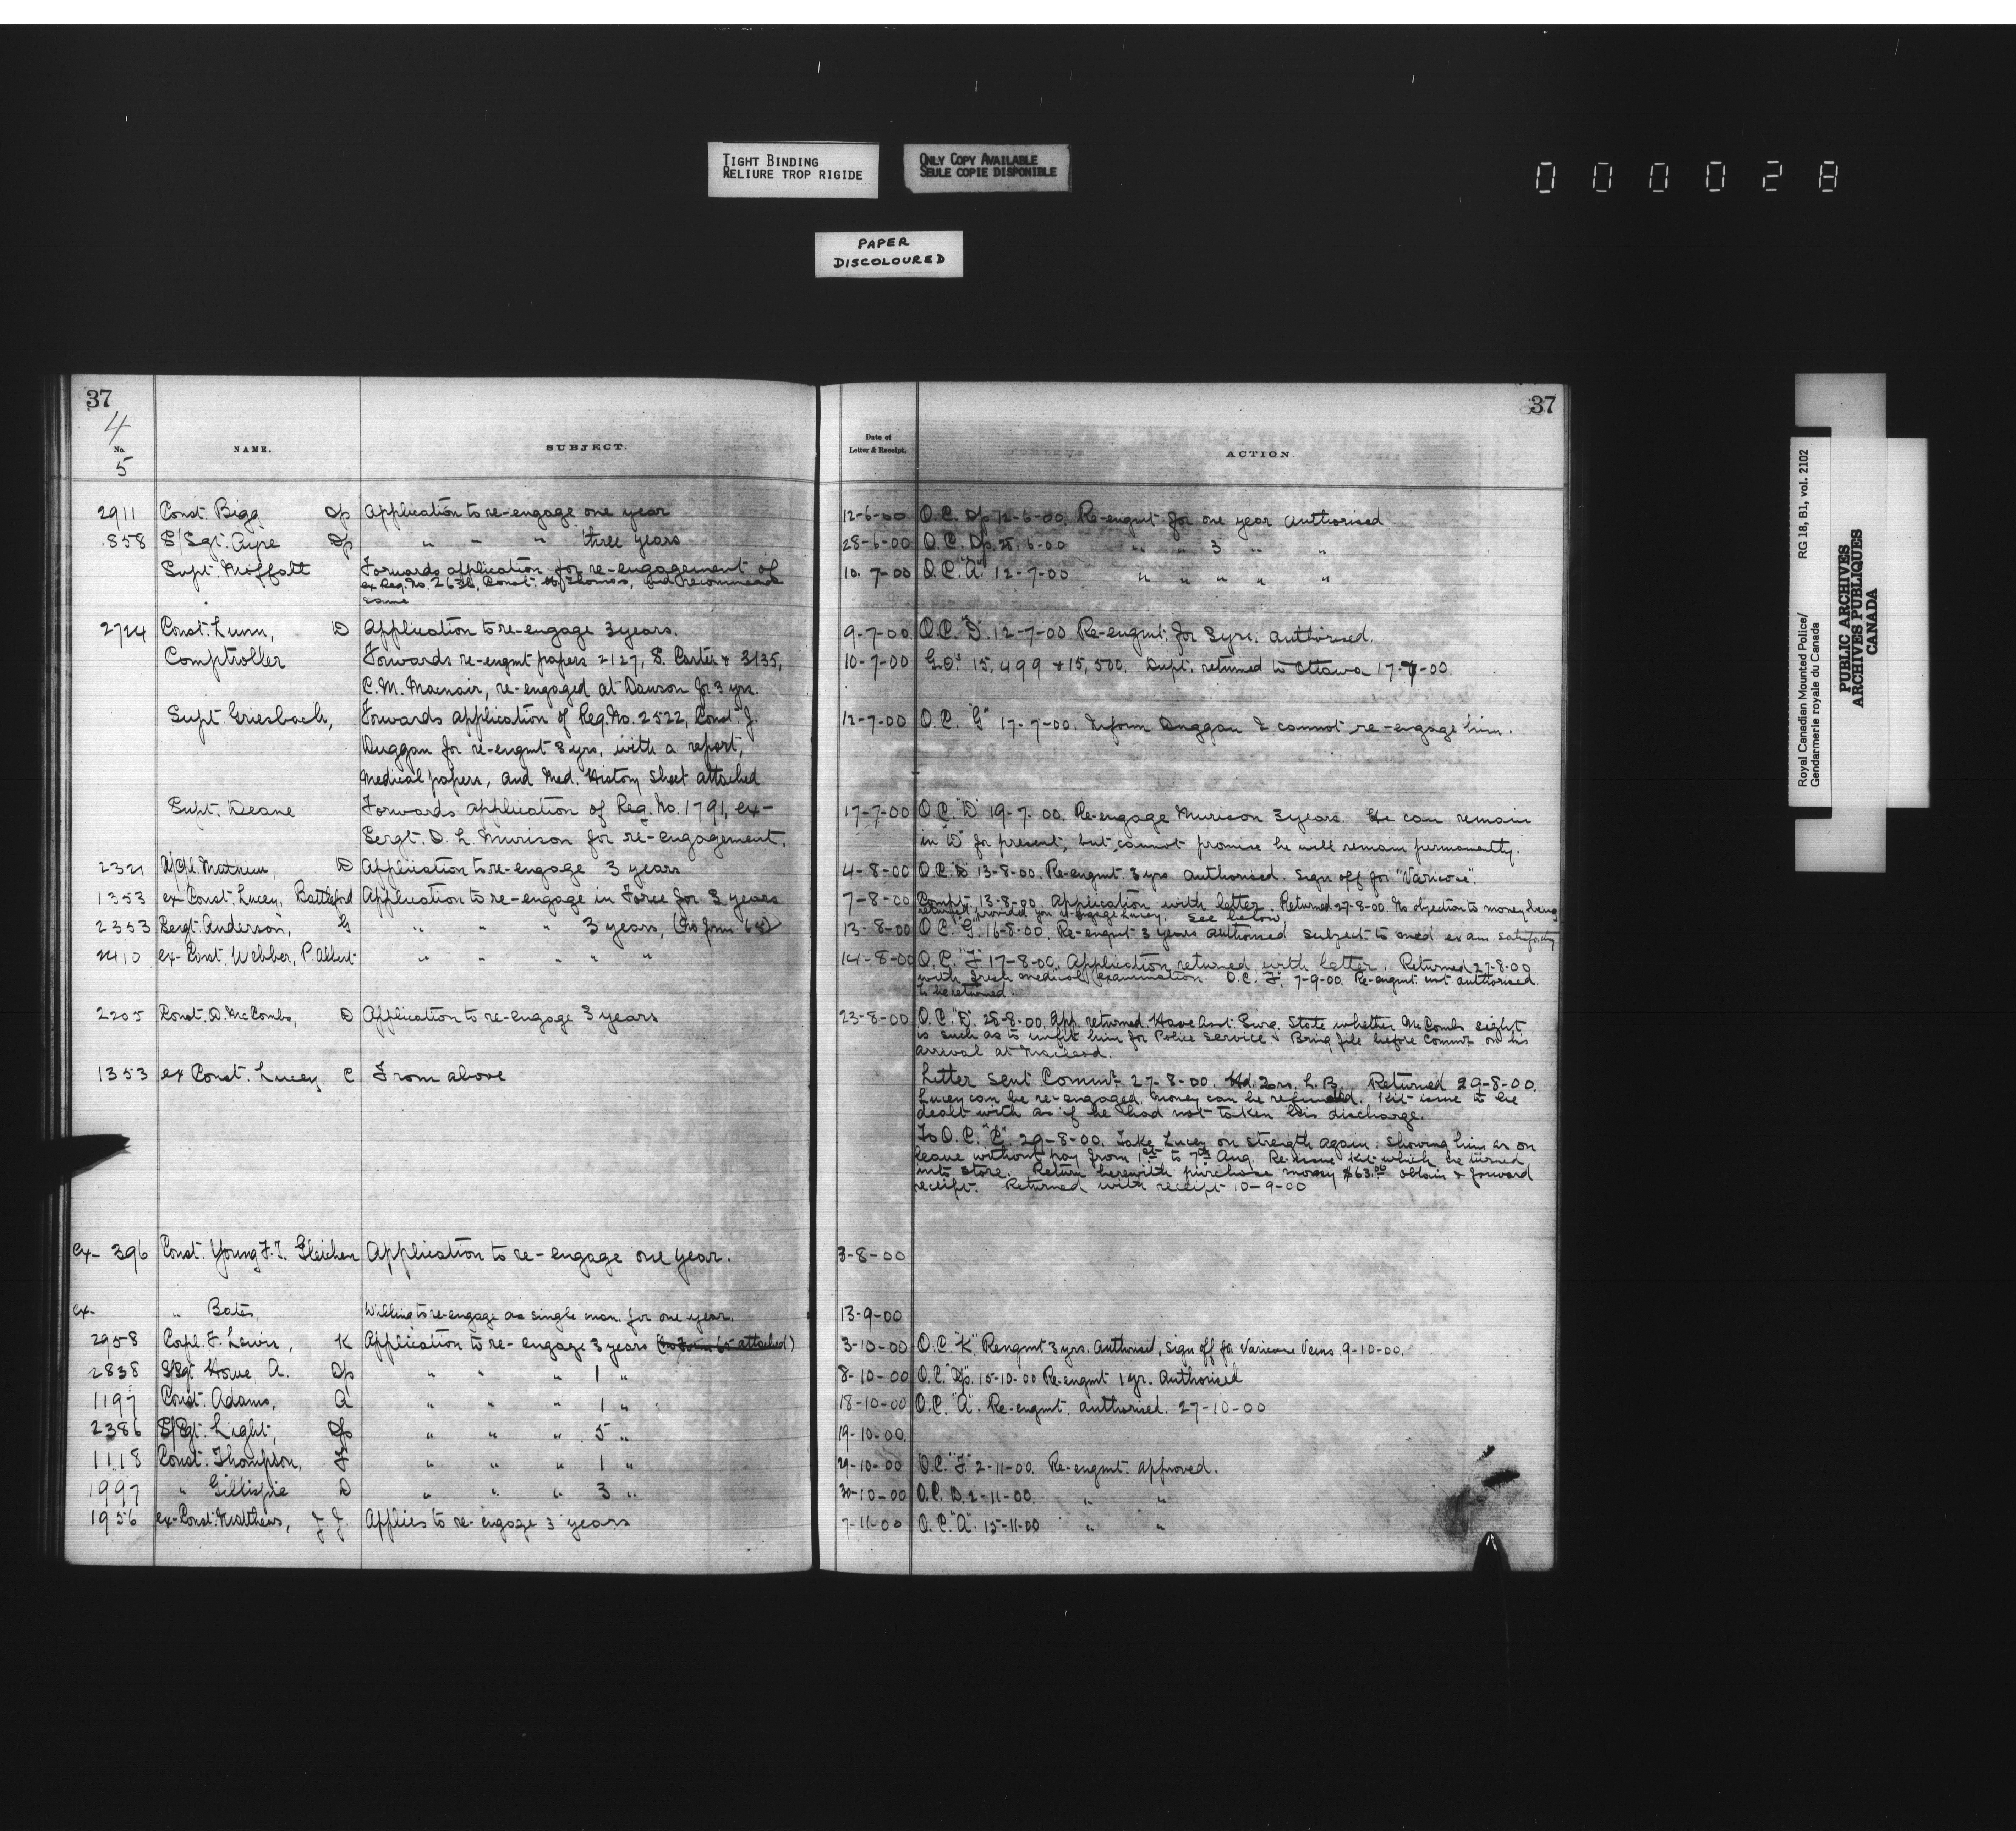 TIGHT BINDING
RELIURE TROP RIGIDE
ONLY COPY AVAILABLE
SEULE COPIE DISPONIBLE
000028
PAPER
DISCOLOURED
37
4
No. NAME. SUBJECT.
5
2911 Const. Bigg Dp Application to re-engage one year
858 S/Sgt. Aire Dp " " " three years
Supt. Moffatt Forwards application for re-engagement of
ex Reg. No. 2638, Const. Thomas, and recommends
same
2724 Const. Lunn, D Application to re-engage 3 years.
Comptroller Forwards re-engmt papers 2127, S. Carter & 3135,
C.M. Macnair, re-engaged at Dawson for 3 yrs.
Supt. Griesbach, Forwards application of Reg. No. 2522, Const. J.
Duggan for re-engmt 3 yrs, with a report,
medical papers, and Med. History Sheet attached
Supt. Deane Forwards application of Reg. No. 1791, ex-
Sergt. D. L. Murison for re-engagement.
2321 A/Cpl. Mathieu, D Application to re-engage 3 years
1353 ex Const. Lucey, Battleford Application to re-engage in Force for 3 years
2353 Sergt. Anderson, G " " " 3 years, (No form 65)
2410 ex-Const. Webber, P. Albert " " " " "
2205 Const. D. McCombs, D Application to re-engage 3 years
1353 ex Const. Lucey C From above
ex- 396 Const. Young F.T. Gleichen Application to re-engage one year.
ex- " Bates, Willing to re-engage as single man for one year.
2958 Corpl. F. Lewis, K Application to re-engage 3 years (No Form 65 attached)
2838 S/Sgt. Howe, A. Dp " " " 1 "
1197 Const. Adams, A " " " 1 "
2386 S/Sgt. Light, Dp " " " 5 "
1118 Const. Thompson, F " " " 1 "
1997 " Gillispie D " " " 3 "
1956 ex-Const. Matthews, J.J. Applies to re-engage 3 years
37
Date of
Letter & Receipt. ACTION
12-6-00 O.C. Dp 12-6-00. Re-engmt for one year authorised
28-6-00 O.C. Dp. 28.6-00 " " 3 " "
10-7-00 O.C. "A" 12-7-00 " " " " "
9-7-00 O.C. "D". 12-7-00 Re-engmt. for 3 yrs. authorised.
10-7-00 G.O's 15,499 & 15,500. Dupt. returned to Ottawa 17-7-00.
12-7-00 O.C. "G" 17-7-00. Inform Duggan I cannot re-engage him.
17-7-00 O.C. "D" 19-7-00. Re-engage Murison 3 years. He can remain
in "D" for present, but cannot promise he will remain permanently.
4-8-00 O.C. "D" 13-8-00. Re-engmt. 3 yrs authorised. Sign off for "Varicose".
7-8-00 Compt. 13-8-00. Application with letter. Returned 27-8-00. No objection to money being
refunded provided you re-engage Lucey. See below.
13-8-00 O.C. "G". 16-8-00. Re-engmt 3 years authorised subject to med. exam. satisfactory
14-8-00 O.C. "F" 17-8-00. Application returned with letter. Returned 27-8-00
with fresh medical examination. O.C. F. 7-9-00. Re-engmt not authorised.
to be returned.
23-8-00 O.C. "D". 28-8-00. App. returned. Have Asst. Surg. State whether McCombs sight
is such as to unfit him for Police Service. Bring file before Commr on his
arrival at Macleod.
Letter sent Commr. 27-8-00. Hd. Qrs. L.B. Returned 29-8-00.
Lucey can be re-engaged. Money can be refunded. Kit issue to be
dealt with as if he had not taken his discharge.
To O.C. "C". 29-8-00. Take Lucey on strength again. Showing him as on
leave without pay from 1st to 7th Aug. Re-issue kit which he turned
into store. Return herewith purchase money $63.00 obtain & forward
receipt. Returned with receipt 10-9-00
3-8-00
13-9-00
3-10-00 O.C. "K" Rengmt 3 yrs. authorised, sign off for Varicose Veins 9-10-00.
8-10-00 O.C. "Dp". 15-10-00 Re-engmt 1 yr. Authorised
18-10-00 O.C. "A". Re-engmt. authorised. 27-10-00
19-10-00.
29-10-00 O.C. "F" 2-11-00. Re-engmt. approved.
30-10-00 O.C. D. 2-11-00. " "
7-11-00 O.C. "A". 15-11-00 " "
Royal Canadian Mounted Police/ RG 18, B1, vol. 2102
Gendarmerie royale du Canada
PUBLIC ARCHIVES
ARCHIVES PUBLIQUES
CANADA